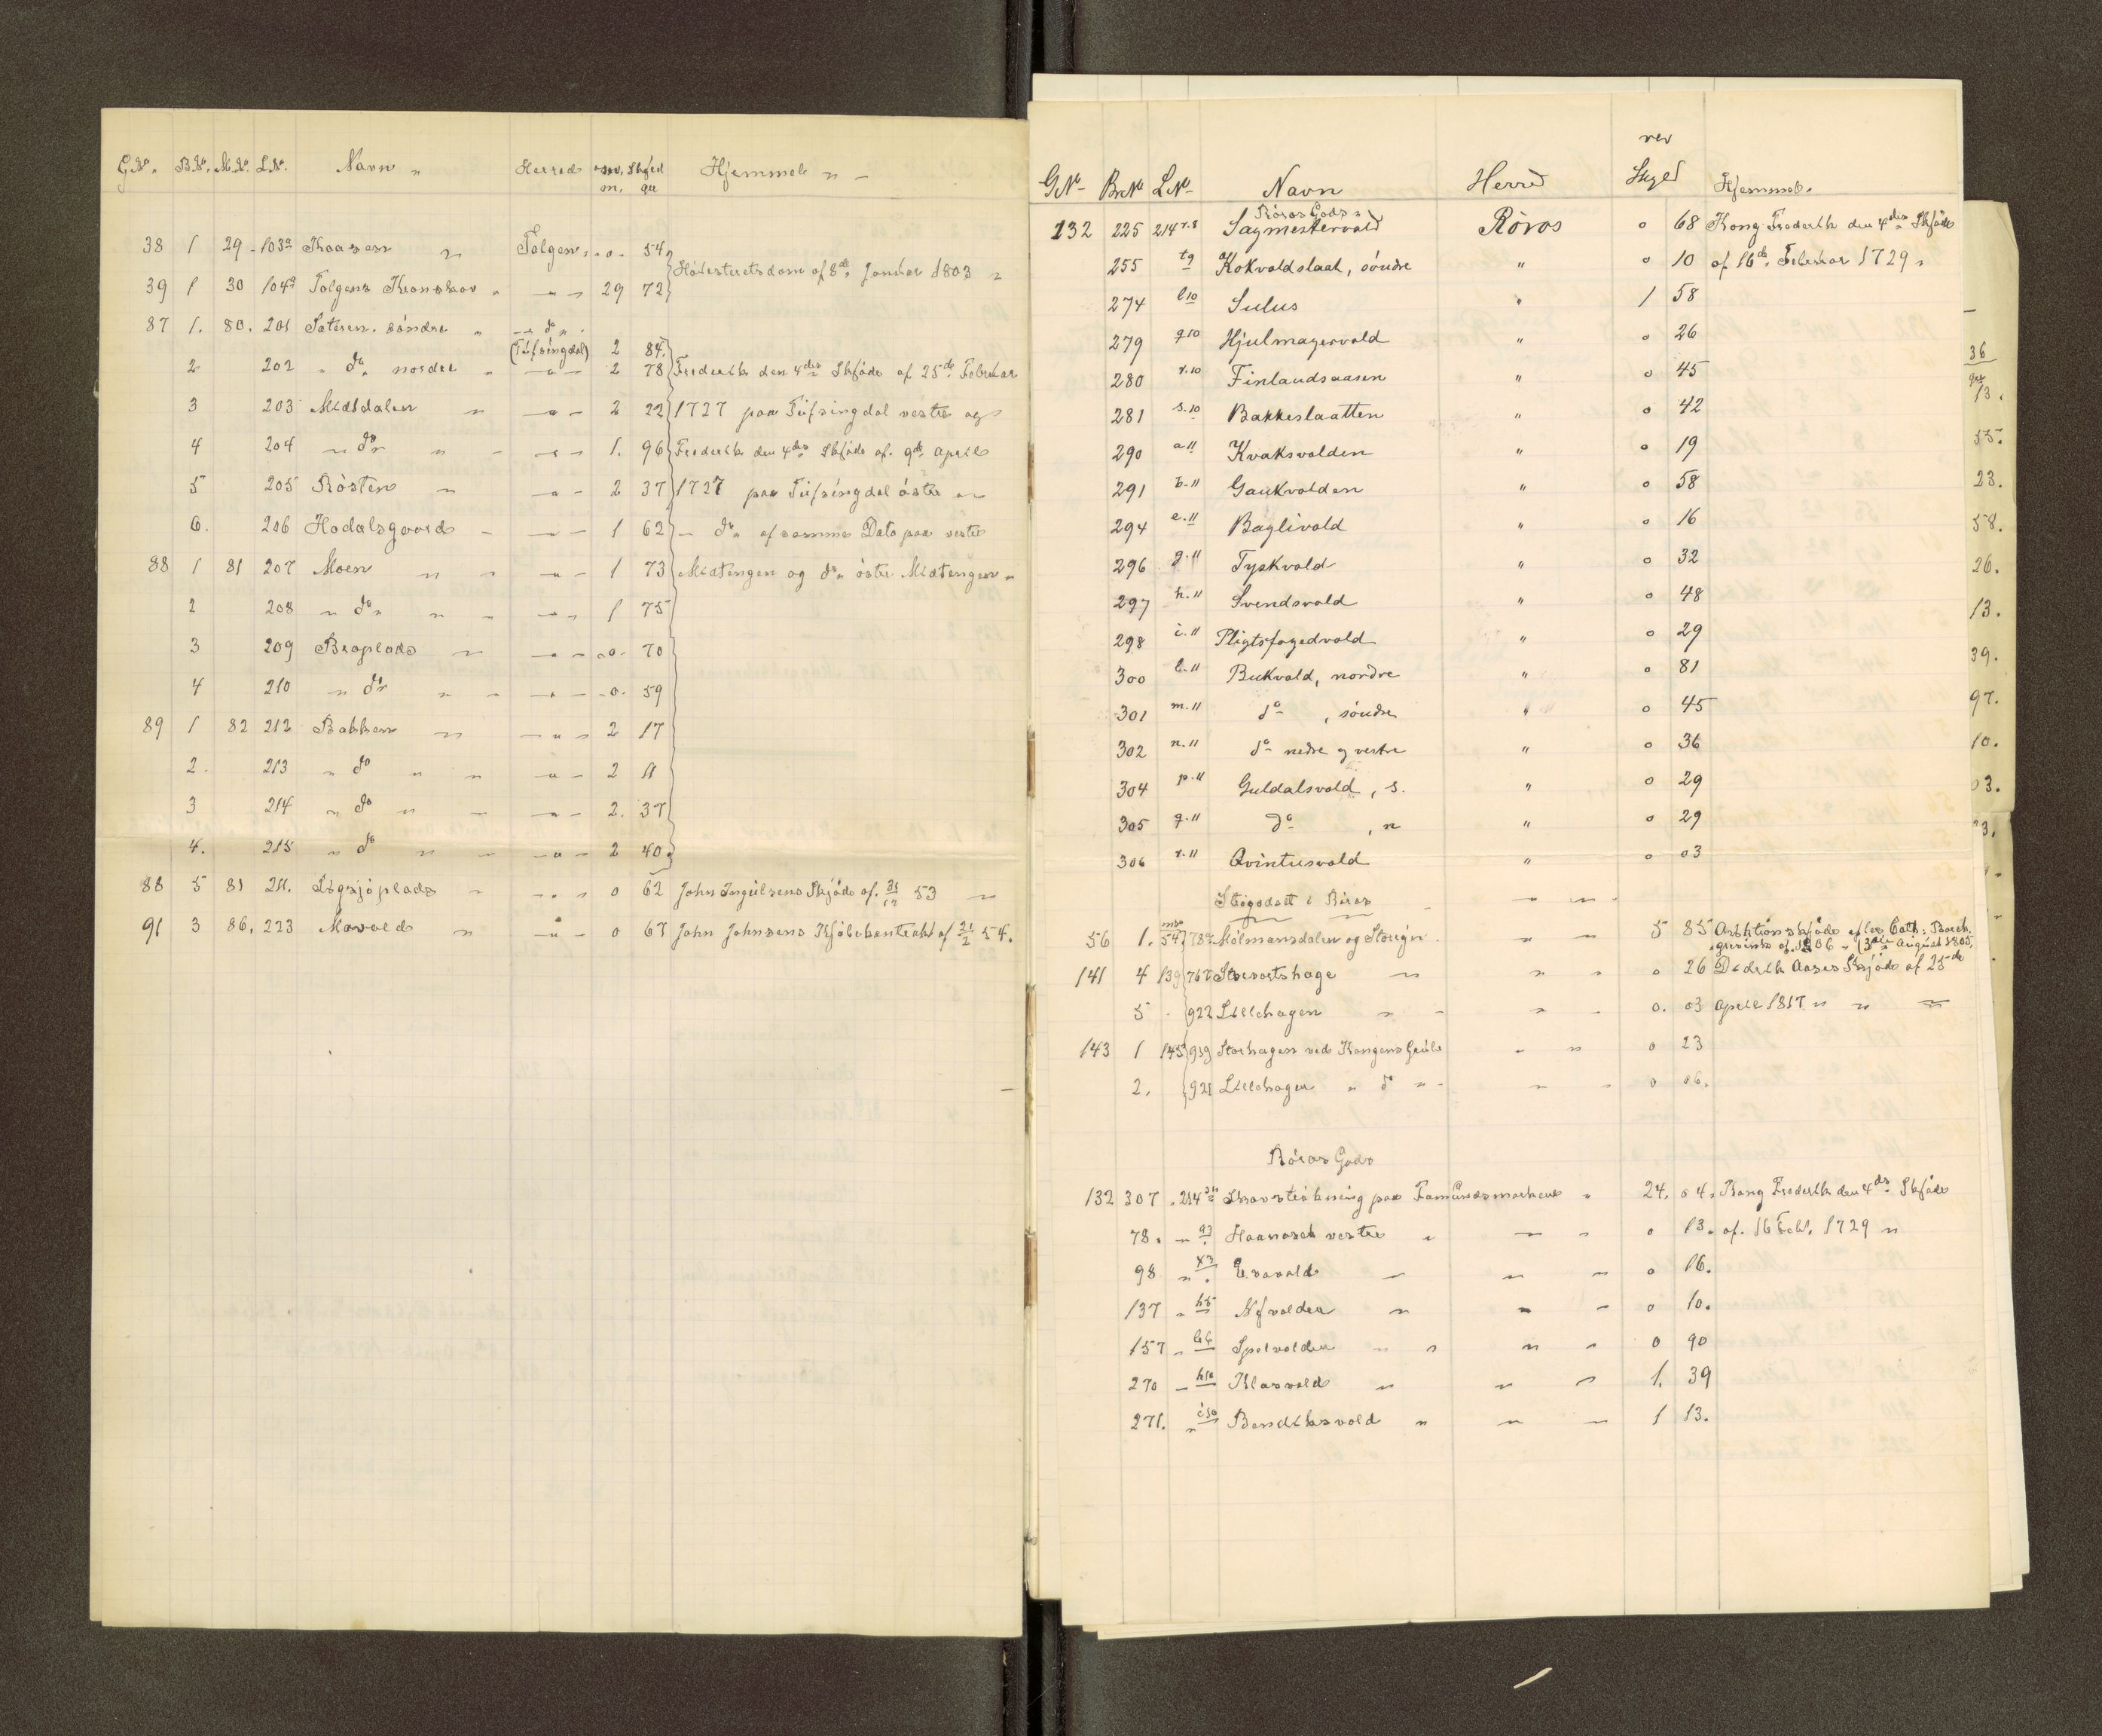 G.No. B.No. M.No. L.No. Navn " Herred Skyld m. øre Hjemmel " -
38 1 29 - 103a Kaasen " Tolgen " - 0 - 54
Höiesteretsdom af 8de Januar 1803 "
39 1 30 104a Tolgens Kronskov " - " - 29 72
87 1. 80. 201 Sateren. söndre " - do " -
(Tufsingdal) 2 84.
2 202 " do " nordre " - " - 2 78 Frederik den 4des Skjöde af 25de Februar
3 203 Midtdalen " - " - 2 22 1727 paa Tufsingdal vestre og
4 204 " do " " - " - 1. 96 Frederik den 4des Skjöde af. 9de April
5 205 Rösten " - " - 2 37 1727 paa Tufsingdal östre " "
6. 206 Hodalsgaard - - " - 1 62 - do " af samme Dato paa vestre
88 1 81 207 Moen " " - " - 1 73 Midtengen og do " östre Midtengen "
2 208 " do " " - - " - 1 75
3 209 Braplads " - " - - 0 - 70
4 210 " do " " - - " - - 0 - 59
89 1 82 212 Bakken " - " - 2 17
2. 213 " do " " - " - 2 11
3 214 " do " - - " - 2. 37
4. 215 " do " - - " - 2 40.
88 5 81 211. Langsjöplads " - " - 0 62 John Ingulsens Skjöde af. 53 "
91 3 86. 223 Mavold " - " - 0 67 John Johnsens Kjöbekontrakt af 21/2 54.
GNo BrNo LNo Navn Herred rev Skyld Hjemmel.
Röros Gods "
132 225 214 r.8 Sagmestervold Röros 0 68 Kong Frederik den 4des Skjöde
255 t9 Kokvoldslaat, söndre " 0 10 af 16de Februar 1729 "
274 l10 Sulus " 1 58
279 q10 Hjulmagervold " 0 26
280 r.10 Finlandsaasen " 0 45
281 s.10 Bakkeslaatten " 0 42
290 a11 Kvaksvolden " 0 19
291 b.11 Gaukvolden " 0 58
294 e.11 Baglivold " 0 16
296 g.11 Tyskvold " 0 32
297 h.11 Svendsvold " 0 48
298 i.11 Pligtsfogedvold " 0 29
300 l.11 Bukvold, nordre " 0 81
301 m.11 do , söndre " 0 45
302 n.11 do nedre og vestre " 0 36
304 p.11 Guldalsvold, s. " 0 29
305 q.11 do , n " 0 29
306 r.11 Qvintusvold " 0 03
i Röros - " -
56 1. 54 78a Molmansdalen og " - 5 85 Auktionsskjöde efter Cath: Borch
grevink af 1806 - (3die August 1805)
141 4 139 767 Storvartshage " " - 0 26 Didrik Aases Skjöde af 25de
5 . 922 Lillehagen " - " - 0. 03 April 1817 " " "
143 1 145 919 Storhagen ved Kongens Grube - " 0 23
2. 921 Lillehagen " do " - " - 0 06.
Röros Gods
132 307 . 214 Skovstrækning paa Fæmundsmarken " 24. 04. Kong Frederik den 4des Skjöde
78. - " q3 vestre " - " 0 13. af. 16 Febr. 1729 "
98 " x3 Evavold - " " 0 16.
137 - h5 Nyvolden " " - 0 10.
157 - b6 Spelvolden " " " " 0 90
270 - h10 Klasvold " " " 1. 39
271. " i10 Bendiksvold " " - 1 13.
36
13.
55.
23.
58.
26.
13.
39.
97.
10.
03.